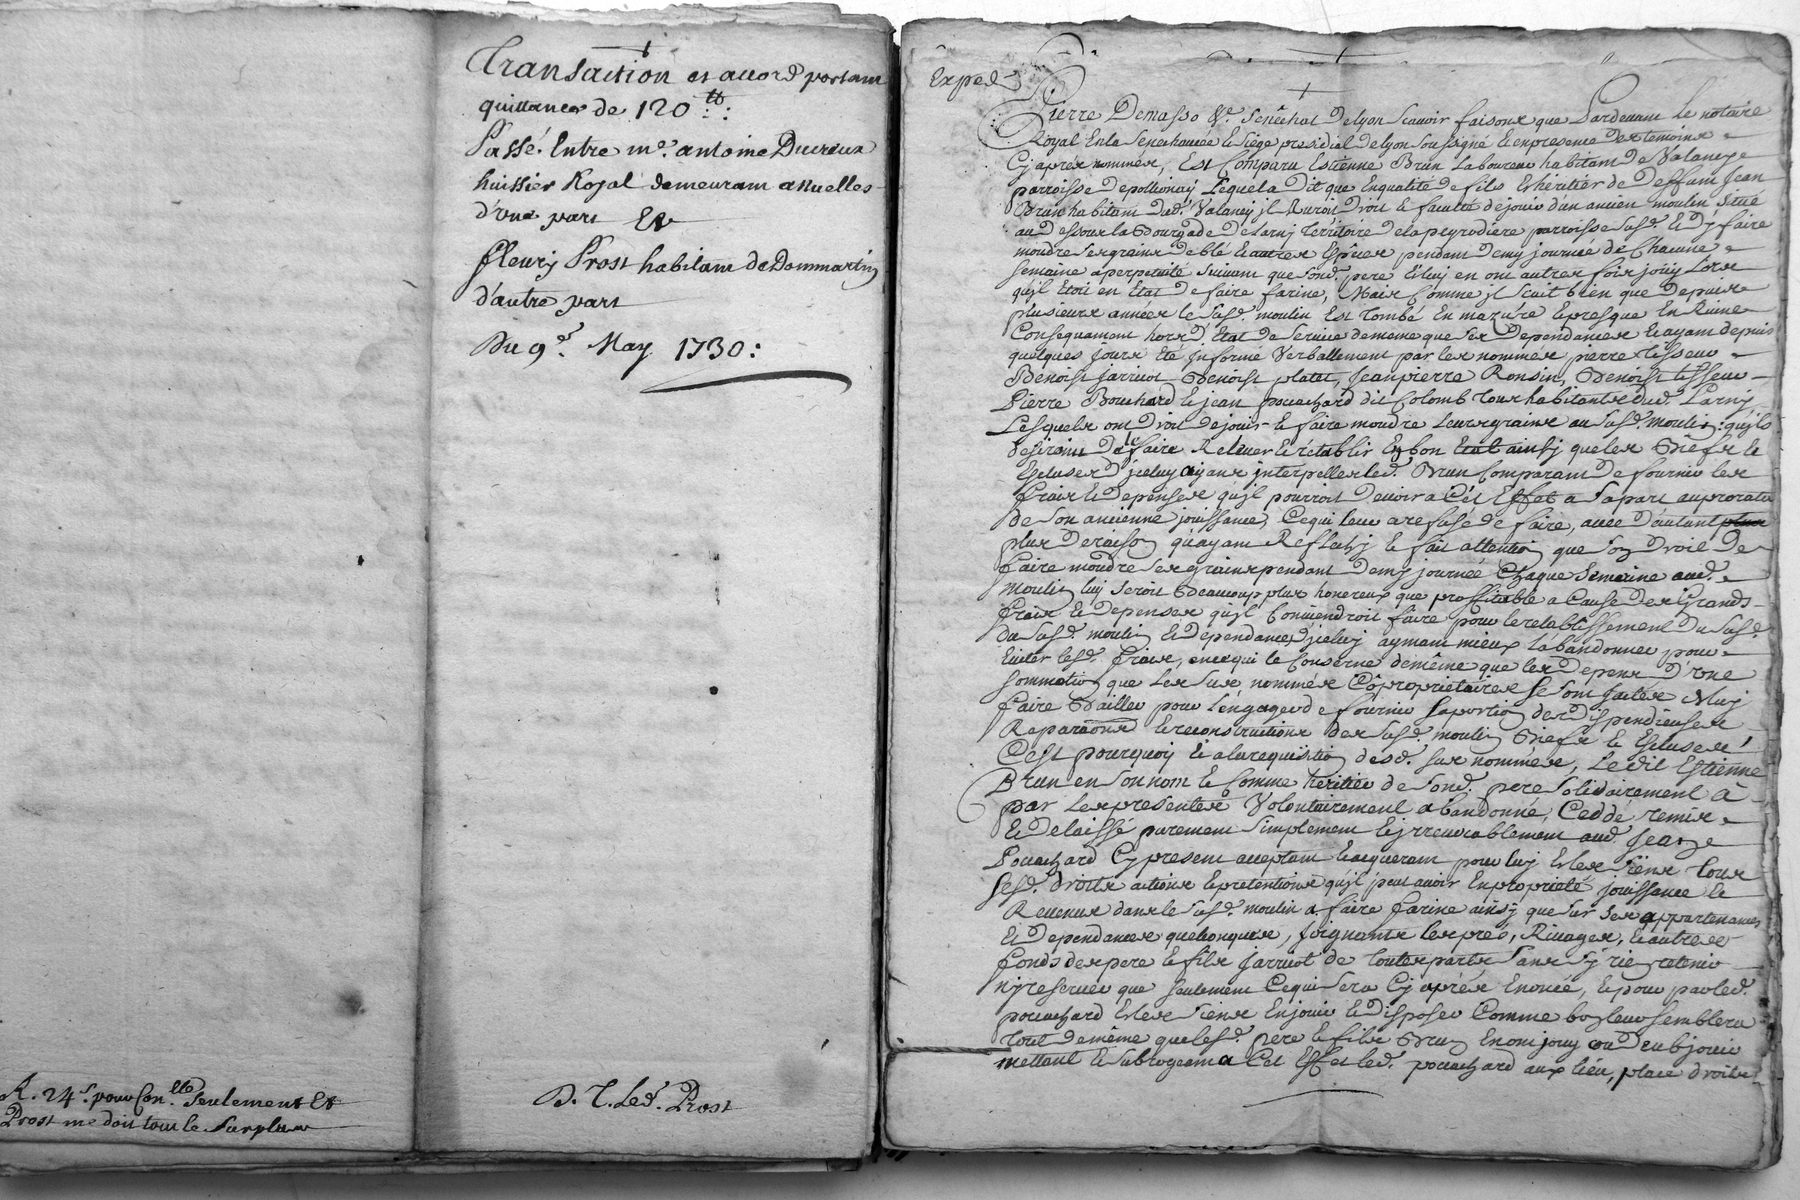 Transaction et accord portant
quittance de 120 tt:
Passé. Entre me. antoine Ducreux
huissier Royal demeurant a nuelles
d'une part Et
fleury Prost habitant de Dommartin
d'autre part
Du 9e. May 1730:
R. 24 s. pour Con.lle seulement Et
Prost me doit tout le surplus
D. T. Led. Prost
Exped
Pierre Demasso &c. senechal de lyon scavoir faisons que Pardevant Le notaire
Royal En la senechaucée & siège presidial de lyon soussigné & en presence des temoins
Cy après nommés, Est Comparu Estienne Brun Laboureur habitant de Valancy
parroisse de pollionay Lequel a Dit que En qualité de fils & héritier de Deffunt Jean
Brun habitant dud. Valancy il Auroit Droit & faculté de jouir d'un ancien moulin situé
au Dessous la Bourgade de Larny territoire de la peyrodiere parroisse susd. & Dy faire
moudre ses grains de blé & autres Espèces pendant demy journée de Chacune
semaine a perpetuité suivant que sond. pere & luy en ont autres fois jouy Lors
qu'il Etoit en Etat de faire farine, Mais Comme il scait bien que Depuis
plusieurs années le susd. moulin Est Tombé En mazure & presque En Ruine
Consequament hors d'Etat de service de meme que ses Dependances & ayant depuis
quelques jours été Informé Verballement par les nommés pierre tisseur
Benoist jarricot Benoist platet, Jean pierre Ronsin, Benoist tisseur
Pierre Bouchard & jean pouachard dit Colomb tous habitants dud. Larny
Lesquels ont Droit de jouir & faire moudre Leurs grains au susd. moulin: qu'ils
desiroint de le faire Relever & rétablir En bon Etat ainsy que les Biefs &
Ecluses d'iceluy ayant interpellés led. Brun Comparant de fournir les
frais & depenses qu'il pourroit Devoir a Cet Effet a sa part au prorata
de son ancienne jouissance, Ce qui leur a refusé de faire, avec D'autant plus
plus De raison qu'ayant Reflechy & fait attention que son Droit De
faire moudre ses grains pendant Demy journée Chaque semaine aud.
Moulin luy seroit Beaucoup plus honereux que proffitable a Cause des Grands
frais & depenses qu'il Conviendroit faire pour le retablissement Du susd.
Du susd. moulin & dependances d'iceluy aymant mieux l'abandonner pour
Eviter lesd. frais, en ce qui le Concerne de même que les Depens D'une
sommation que Les sus nommés Copropriétaires se sont faites Muy
faire Bailler pour L'engager de fournir sa portion des Dispendieuses
Reparaons & reconstructions des susd. moulin Biefs & Ecluses
C'est pourquoy & a la requisition desd. sus nommés, Ledit Estienne
Brun en son nom & Comme heritier de sond. pere solidairement a
par Les presentes Volontairement abandonné, Ceddé remis
& Delaissé purement simplement & irrevocablement aud. Jean
Pouachard Cy present acceptant & acquerant pour luy & les siens tous
sesd. droits actions & pretentions qu'il peut avoir En proprieté jouissance &
Revenus dans le susd. moulin a faire farine ainsy que sur ses appartenances
& Dependances quelconques, joignants les prés, Rivages, & autres
fonds des pere & fils jarricot de toutes parts sans sy rien retenir
ny reserver que seulement Ce qui sera Cy après Enoncé, & pour par led.
pouachard & les siens En jouir & Disposer Comme bon leur semblera
Tout de même que lesd. pere & fils Brun En ont jouy ou Deub jouir
mettant & subrogeant a Cet Effet led. pouachard aux lieu, place droits